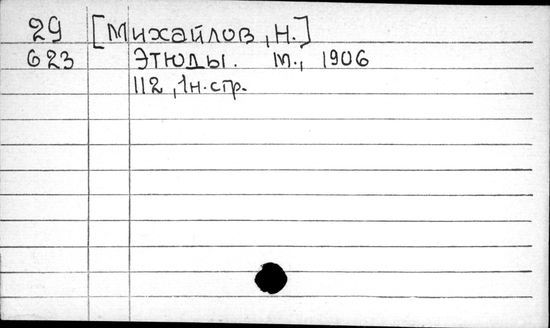 29 [Михайлов, Н.]
623 Этюды. М., 1906
112, 1н.стр.